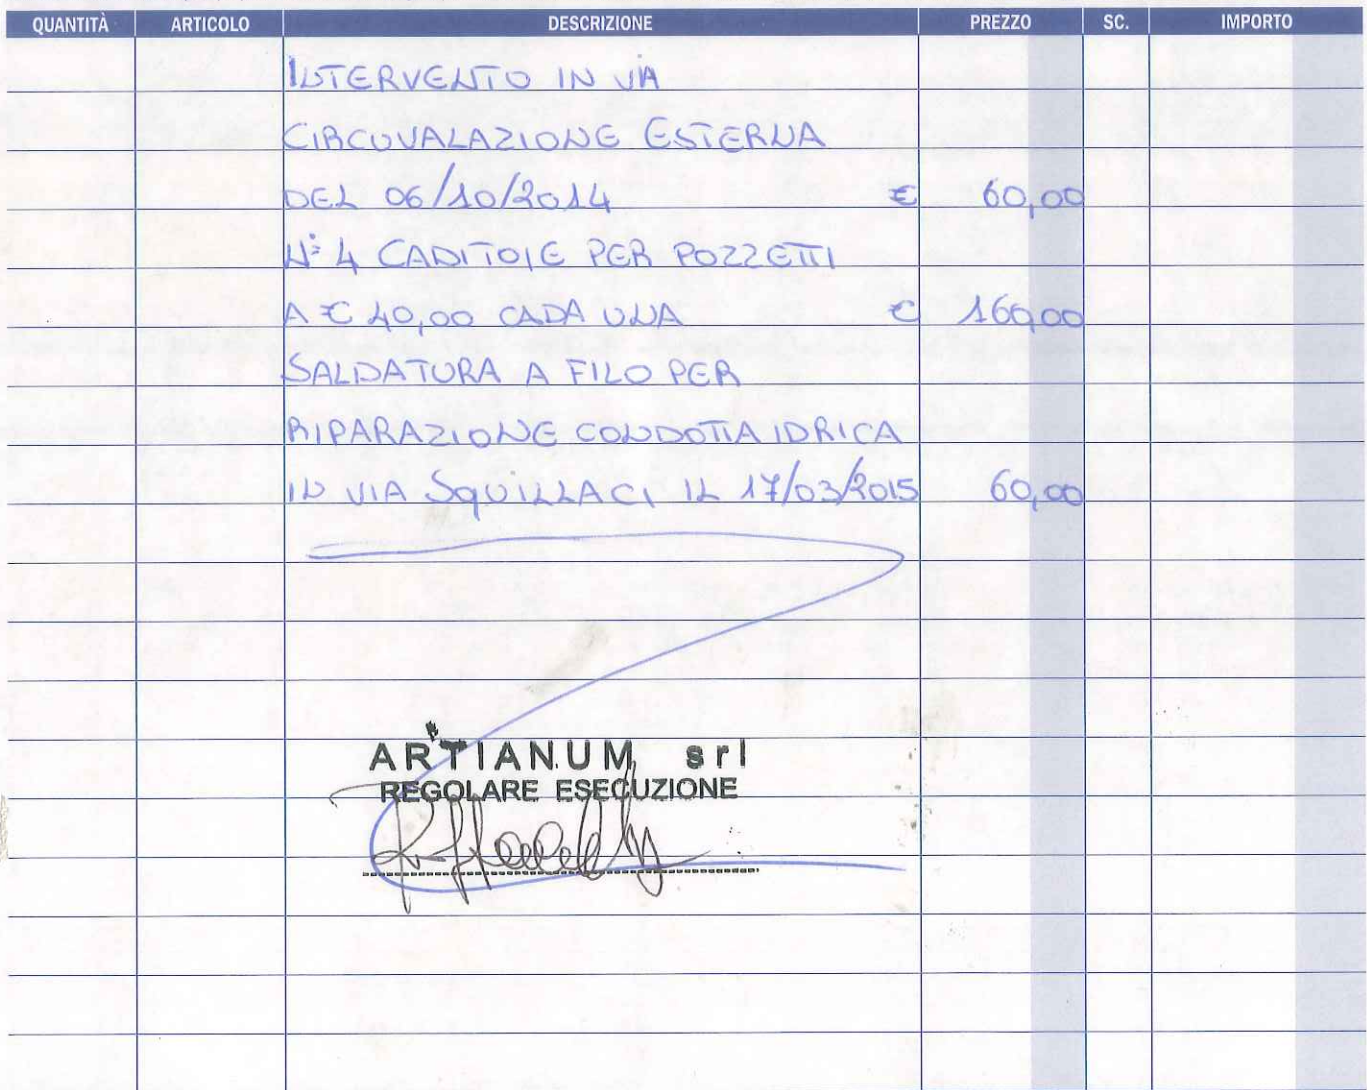 QUANTITÀ ARTICOLO DESCRIZIONE PREZZO SC. IMPORTO
INTERVENTO IN VIA
CIRCUVALAZIONE ESTERNA
DEL 06/10/2014 € 60,00
N° 4 CADITOIE PER POZZETTI
A € 40,00 CADA UNA € 160,00
SALDATURA A FILO PER
RIPARAZIONE CONDOTTA IDRICA
IN VIA SQUILLACI IL 17/03/2015 60,00
ARTIANUM srl
REGOLARE ESECUZIONE